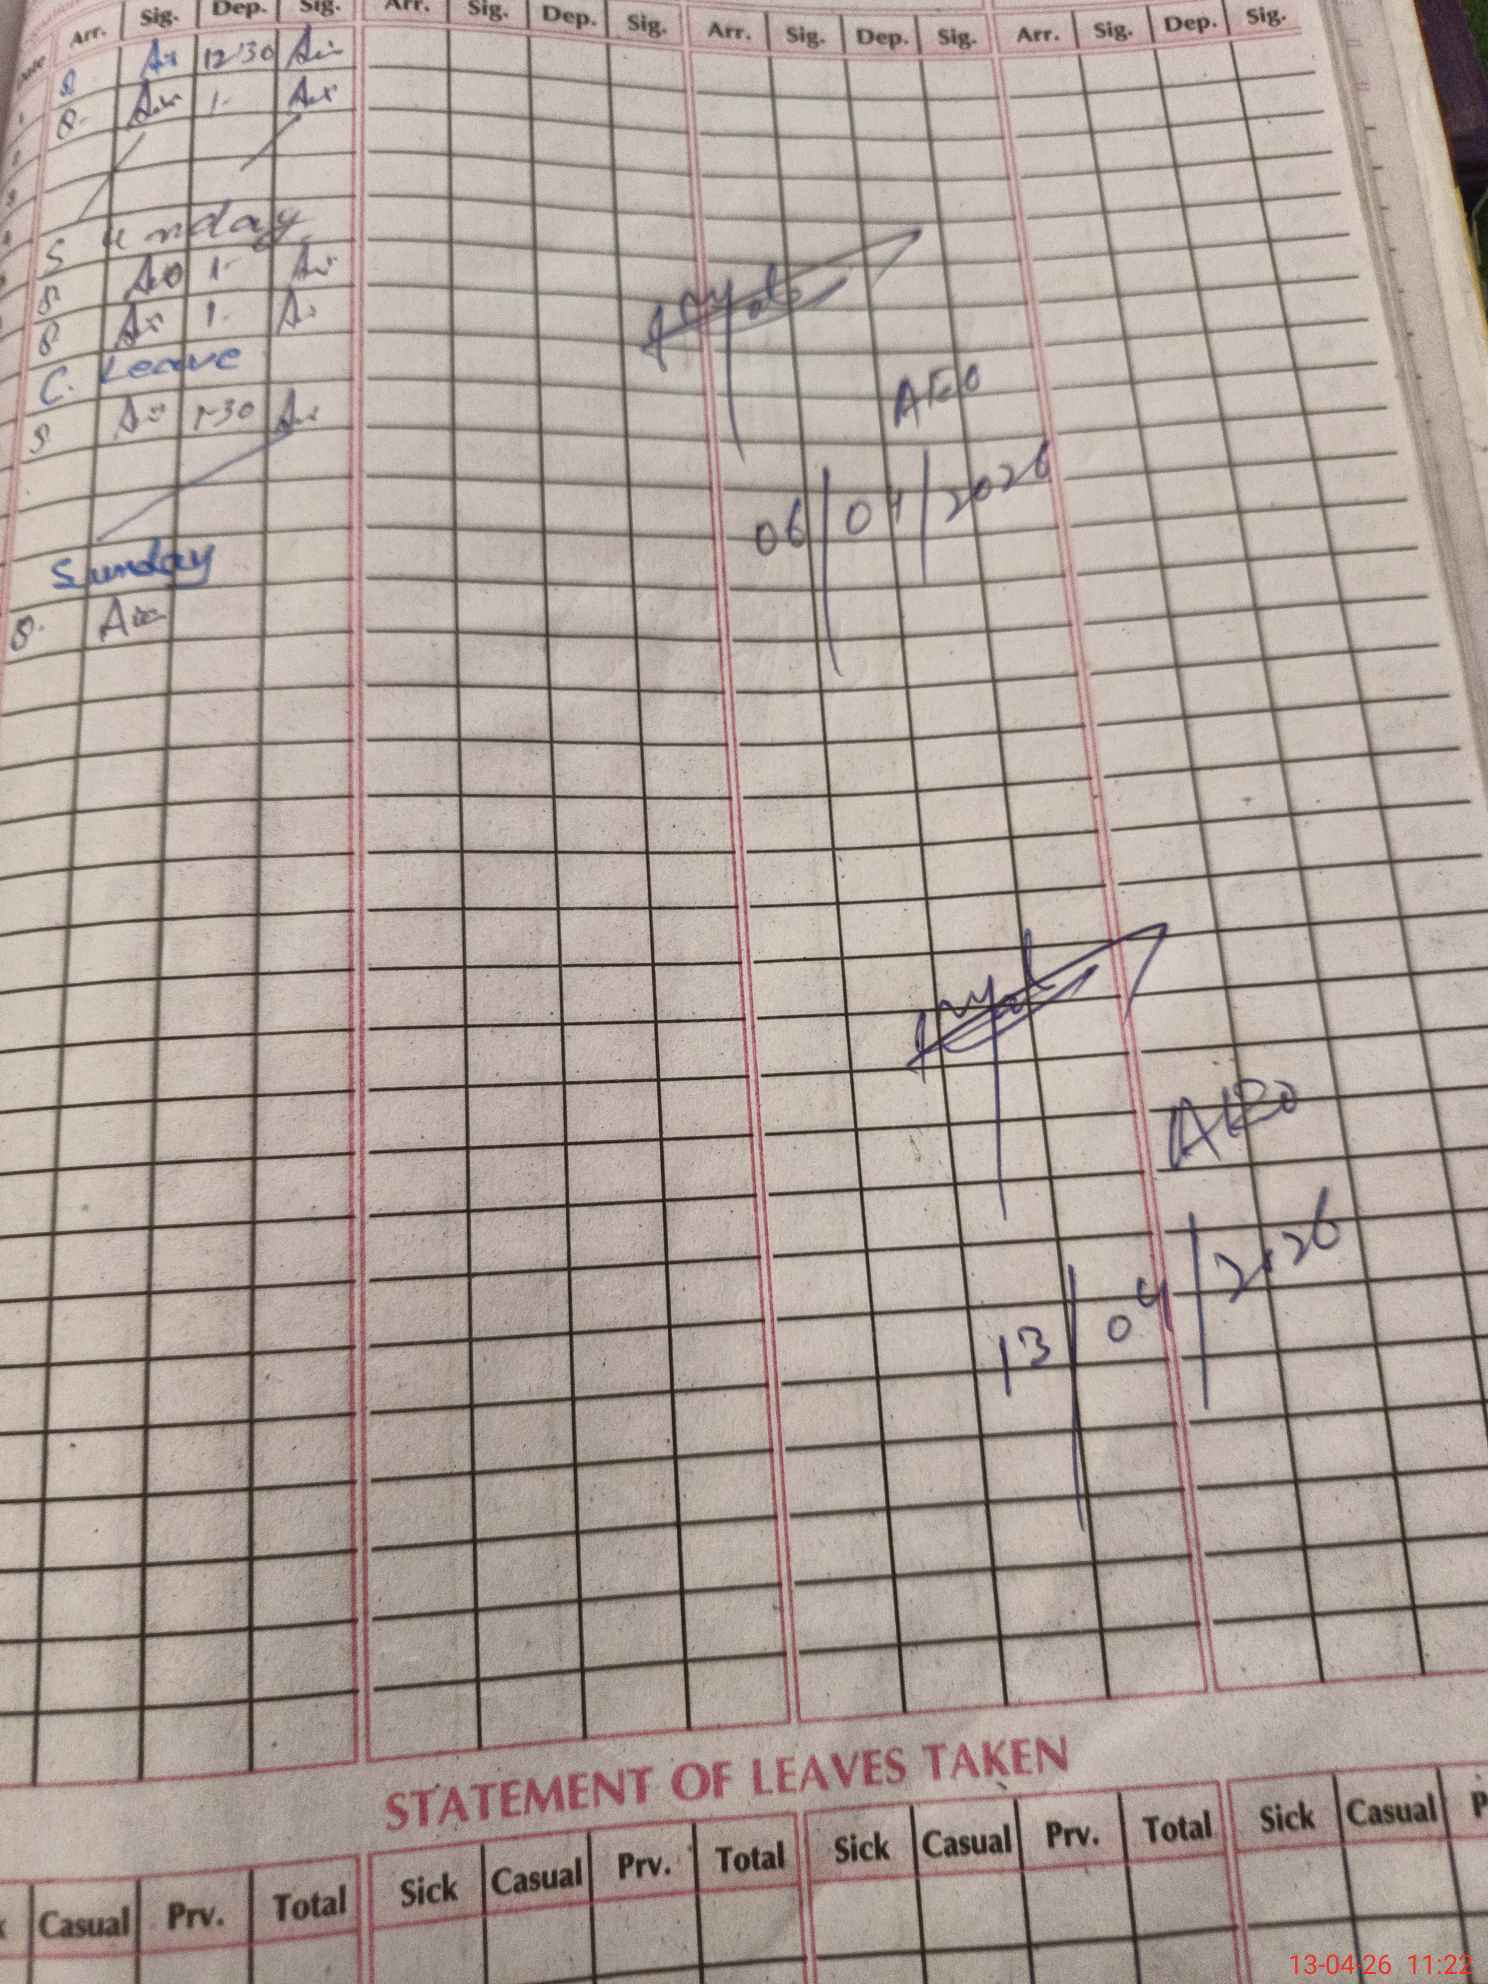 Arr. Sig. Dep. Sig. Arr. Sig. Dep. Sig. Arr. Sig. Dep. Sig. Arr. Sig. Dep. Sig.
8 12-30
8- 1-
Sunday
8 1-
8 1-
C. Leave
8 1-30
Sunday
8-
AEO
06/04/2026
AEO
13/04/2026
STATEMENT OF LEAVES TAKEN
Casual Prv. Total Sick Casual Prv. Total Sick Casual Prv. Total Sick Casual
13-04-26 11:22